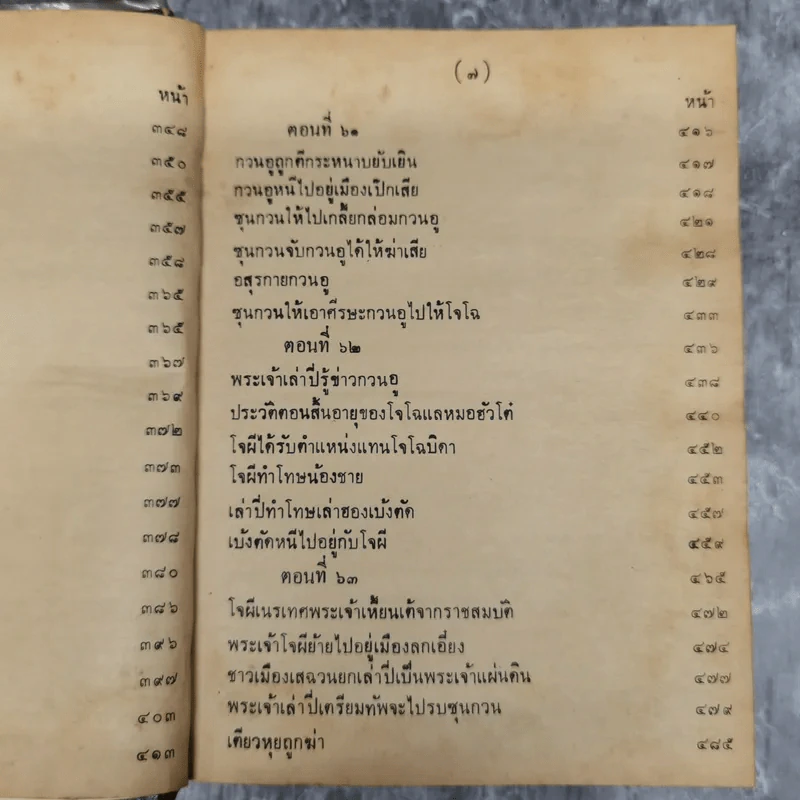 หน้า
๓๔๘
๓๕๐
๓๕๕
๓๕๗
๓๕๘
๓๖๕
๓๖๕
๓๖๗
๓๖๙
๓๗๒
๓๗๓
๓๗๗
๓๗๘
๓๘๐
๓๘๖
๓๙๖
๓๙๗
๔๐๓
๔๑๓
(๗)
หน้า
ตอนที่ ๖๑ ๔๑๖
กวนอูถูกตีกระหนาบยับเยิน ๔๑๗
กวนอูหนีไปอยู่เมืองเป๊กเสีย ๔๑๘
ซุนกวนให้ไปเกลี้ยกล่อมกวนอู ๔๒๑
ซุนกวนจับกวนอูได้ให้ฆ่าเสีย ๔๒๘
อสุรกายกวนอู ๔๒๙
ซุนกวนให้เอาศีรษะกวนอูไปให้โจโฉ ๔๓๓
ตอนที่ ๖๒ ๔๓๖
พระเจ้าเล่าปี่รู้ข่าวกวนอู ๔๓๘
ประวัติตอนสิ้นอายุของโจโฉแลหมอฮัวโต๋ ๔๔๐
โจผีได้รับตำแหน่งแทนโจโฉบิดา ๔๕๒
โจผีทำโทษน้องชาย ๔๕๓
เล่าปี่ทำโทษเล่าฮองเบ้งตัด ๔๕๗
เบ้งตัดหนีไปอยู่กับโจผี ๔๕๙
ตอนที่ ๖๓ ๔๖๕
โจผีเนรเทศพระเจ้าเหี้ยนเต้จากราชสมบัติ ๔๗๒
พระเจ้าโจผีย้ายไปอยู่เมืองลกเอี๋ยง ๔๗๔
ชาวเมืองเสฉวนยกเล่าปี่เป็นพระเจ้าแผ่นดิน ๔๗๗
พระเจ้าเล่าปี่เตรียมทัพจะไปรบซุนกวน ๔๗๙
เตียวหุยถูกฆ่า ๔๘๕